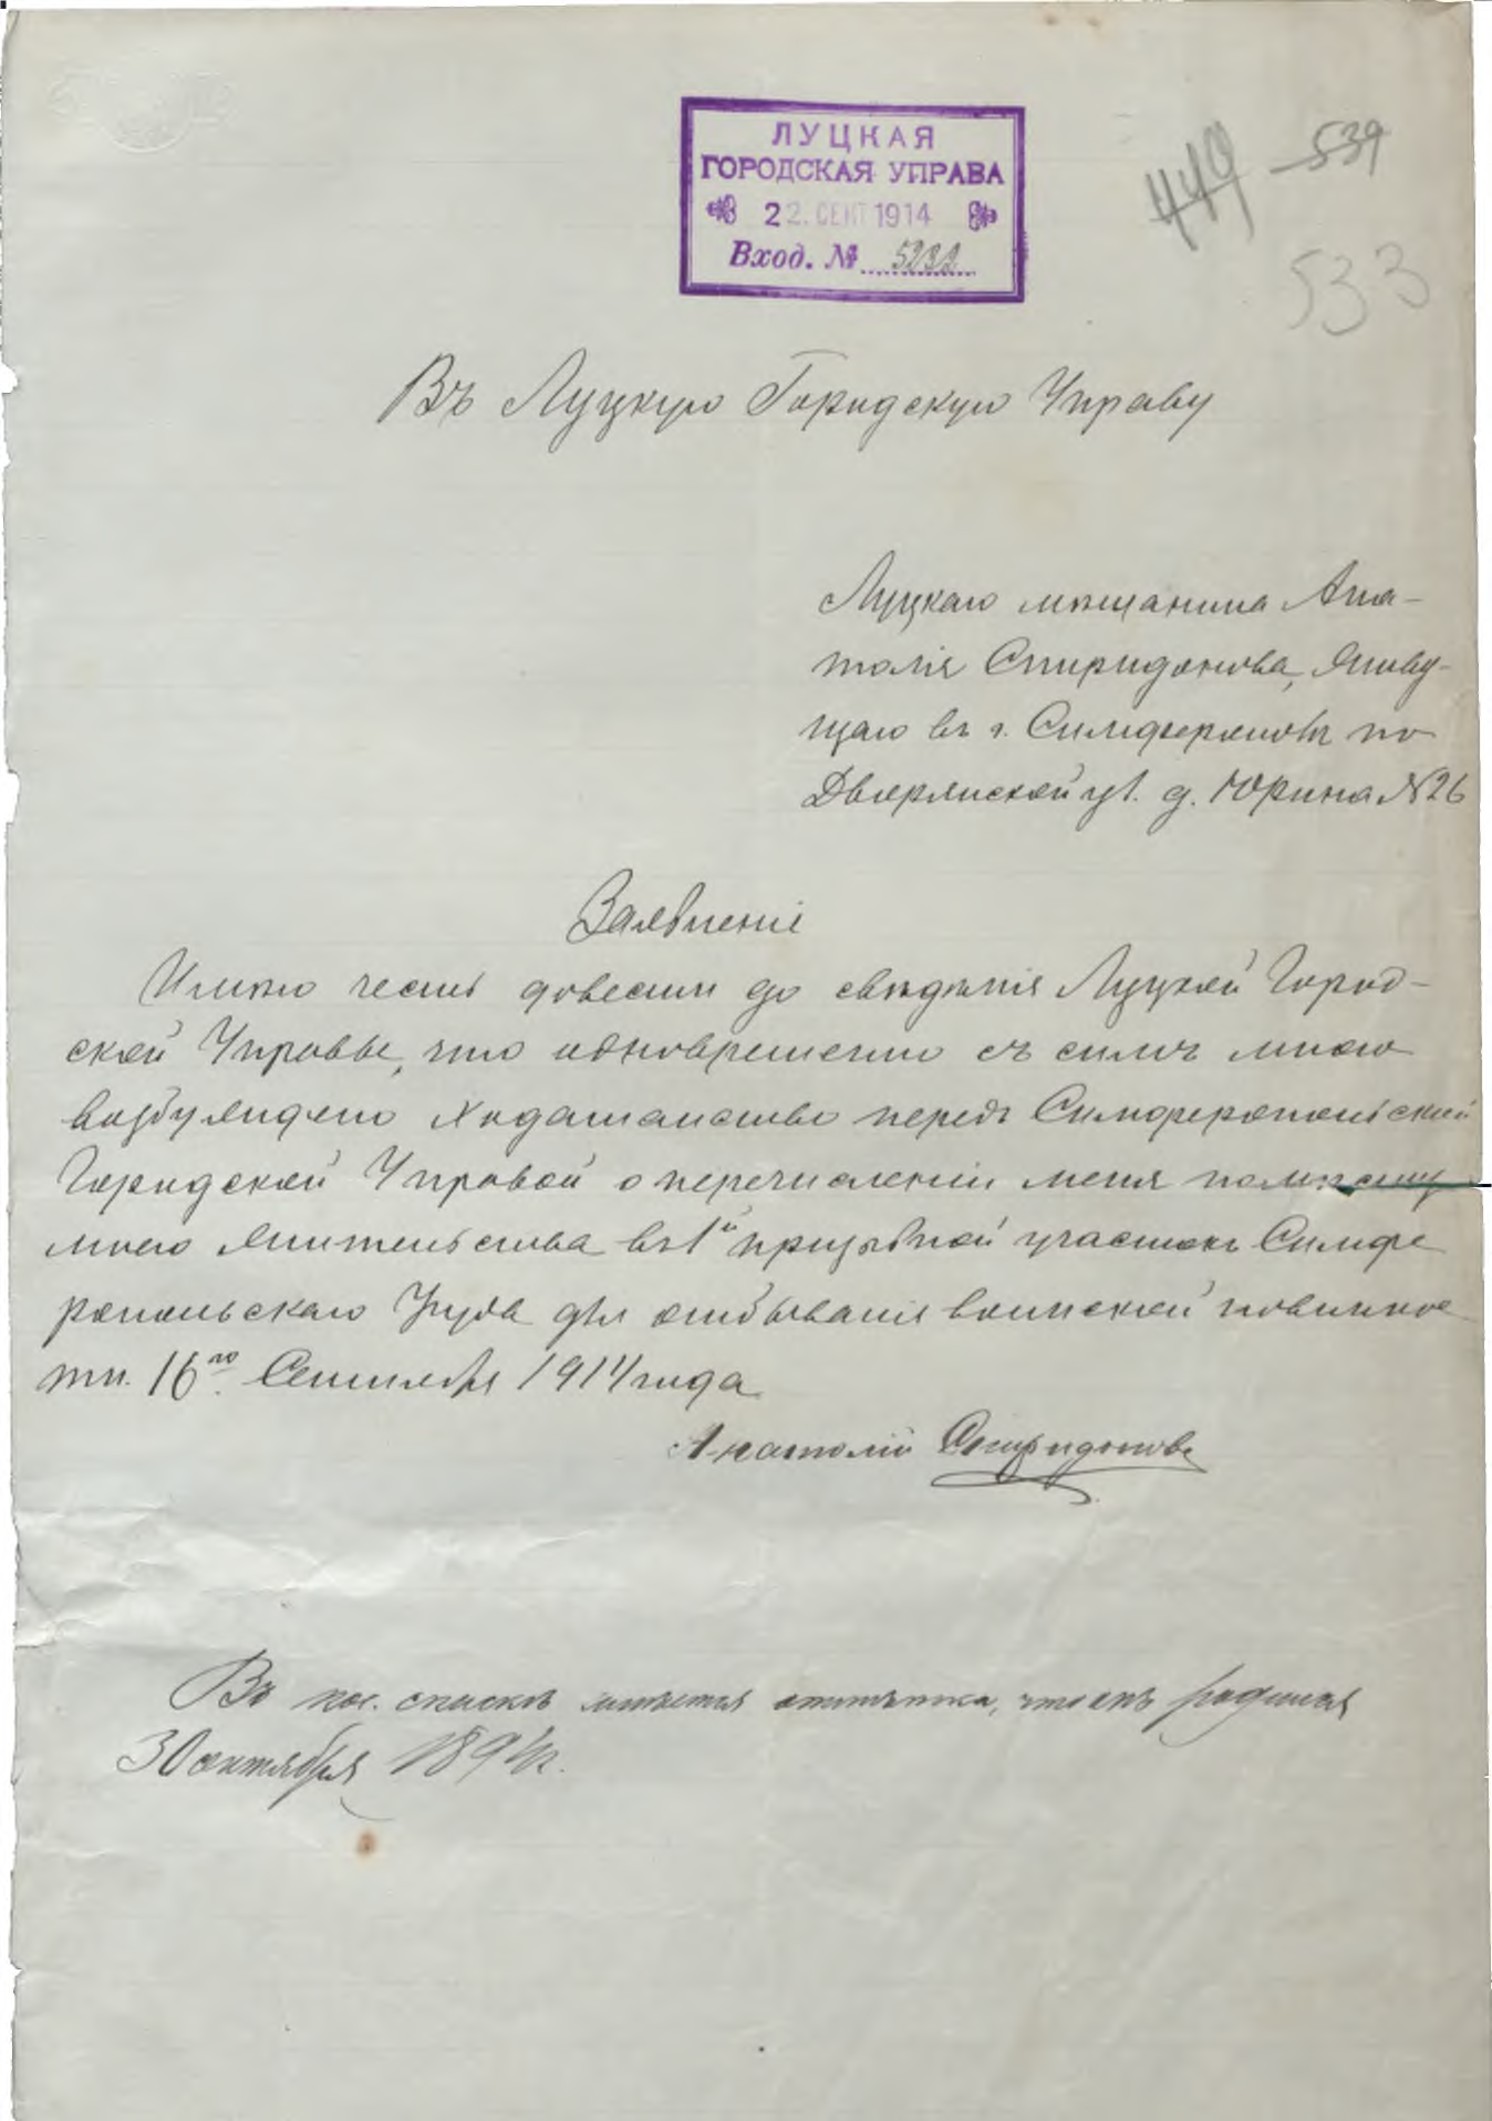 ЛУЦКАЯ
ГОРОДСКАЯ УПРАВА
22. СЕНТ 1914
Вход. № 5232
449 — 539
533
Въ Луцкую Городскую Управу
Луцкаго мѣщанина Ана-
толія Спиридонова, живу-
щаго въ г. Симферополѣ по
Дворянской ул. д. Юрина №26
Заявленіе
Имѣю честь довести до свѣдѣнія Луцкой Город-
ской Управы, что одновременно съ симъ мною
возбуждено ходатайство передъ Симферопольской
Городской Управой о перечисленіи меня по мѣсту
моего жительства въ 1й призывной участокъ Симфе
ропольскаго Уѣзда для отбыванія воинской повиннос
ти. 16го Сентября 1914 года
Анатолій Спиридоновъ
Въ пос. спискѣ имѣется отмѣтка, что онъ родился
30 октября 1894 г.